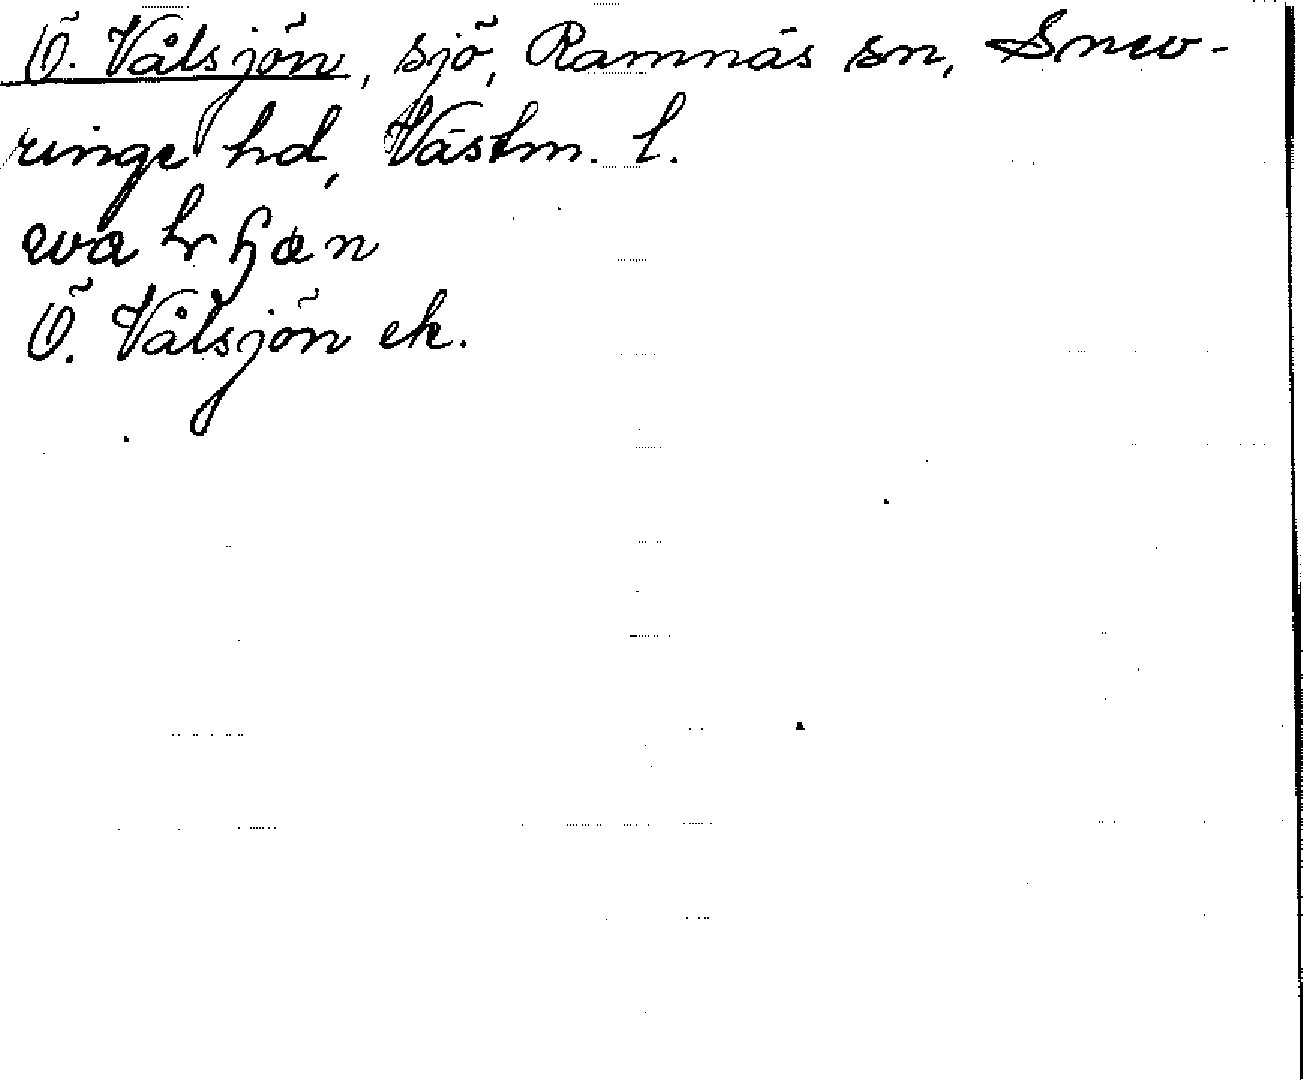 Ö. Vålsjön, sjö, Ramnäs sn, Snev-
ringe hd, Västm. l.
Ö. Vålsjön ek.